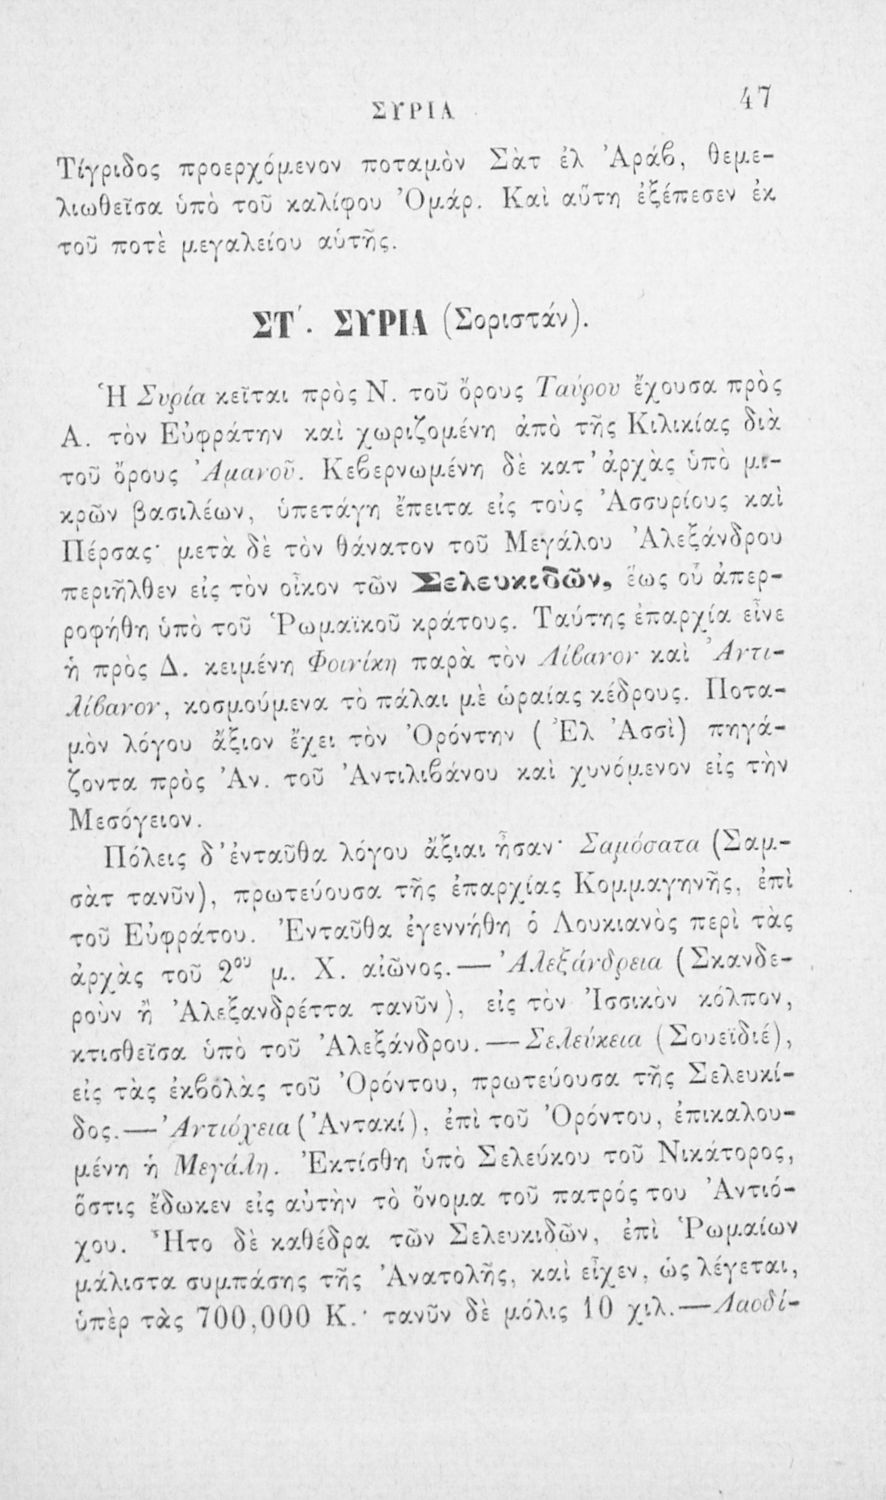 ΣΥΡΙΑ 47
Τίγριδος προερχόμενον ποταμὸν Σὰτ ἐλ Ἀράβ, θεμε-
λιωθεῖσα ὑπὸ τοῦ καλίφου Ὀμάρ. Καὶ αὕτη ἐξέπεσεν ἐκ
τοῦ ποτὲ μεγαλείου αὐτῆς.
ΣΤ΄. ΣΥΡΙΑ (Σοριστάν).
Ἡ Συρία κεῖται πρὸς Ν. τοῦ ὄρους Ταύρου ἔχουσα πρὸς
Α. τὸν Εὐφράτην καὶ χωριζομένη ἀπὸ τῆς Κιλικίας διὰ
τοῦ ὄρους Ἀμανοῦ. Κεβερνωμένη δὲ κατ' ἀρχὰς ὑπὸ μι-
κρῶν βασιλέων, ὑπετάγη ἔπειτα εἰς τοὺς Ἀσσυρίους καὶ
Πέρσας· μετὰ δὲ τὸν θάνατον τοῦ Μεγάλου Ἀλεξάνδρου
περιῆλθεν εἰς τὸν οἶκον τῶν Σελευκιδῶν, ἕως οὗ ἀπερ-
ροφήθη ὑπὸ τοῦ Ῥωμαϊκοῦ κράτους. Ταύτης ἐπαρχία εἶνε
ἡ πρὸς Δ. κειμένη Φοινίκη παρὰ τὸν Λίβανον καὶ Ἀντι-
λίβανον, κοσμούμενα τὸ πάλαι μὲ ὡραίας κέδρους. Ποτα-
μὸν λόγου ἄξιον ἔχει τὸν Ὀρόντην (Ἐλ Ἀσσὶ) πηγά-
ζοντα πρὸς Ἀν. τοῦ Ἀντιλιβάνου καὶ χυνόμενον εἰς τὴν
Μεσόγειον.
Πόλεις δ' ἐνταῦθα λόγου ἄξιαι ἦσαν· Σαμόσατα (Σαμ-
σὰτ τανῦν), πρωτεύουσα τῆς ἐπαρχίας Κομμαγηνῆς, ἐπὶ
τοῦ Εὐφράτου. Ἐνταῦθα ἐγεννήθη ὁ Λουκιανὸς περὶ τὰς
ἀρχὰς τοῦ 2ου μ. Χ. αἰῶνος.—Ἀλεξάνδρεια (Σκανδε-
ροὺν ἢ Ἀλεξανδρέττα τανῦν), εἰς τὸν Ἰσσικὸν κόλπον,
κτισθεῖσα ὑπὸ τοῦ Ἀλεξάνδρου.—Σελεύκεια (Σουεϊδιέ),
εἰς τὰς ἐκβολὰς τοῦ Ὀρόντου, πρωτεύουσα τῆς Σελευκί-
δος.—Ἀντιόχεια (Ἀντακί), ἐπὶ τοῦ Ὀρόντου, ἐπικαλου-
μένη ἡ Μεγάλη. Ἐκτίσθη ὑπὸ Σελεύκου τοῦ Νικάτορος,
ὅστις ἔδωκεν εἰς αὐτὴν τὸ ὄνομα τοῦ πατρός του Ἀντιό-
χου. Ἦτο δὲ καθέδρα τῶν Σελευκιδῶν, ἐπὶ Ῥωμαίων
μάλιστα συμπάσης τῆς Ἀνατολῆς, καὶ εἶχεν, ὡς λέγεται,
ὑπὲρ τὰς 700,000 Κ.· τανῦν δὲ μόλις 10 χιλ.—Λαοδί-